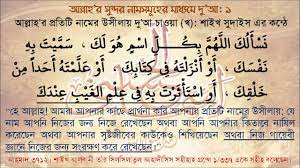 আল্লাহ'র সুন্দর নামসমূহের মাধ্যমে দু'আ: ১
আল্লাহ'র প্রতিটি নামের উসীলায় দু'আ-চাওয়া (খ): শাইখ সুদাইস এর কণ্ঠে
نَسْأَلُكَ اللَّهُمَّ بِكُلِّ اسْمٍ هُوَ لَكَ ، سَمَّيْتَ بِهِ
نَفْسَكَ ، أَوْ أَنْزَلْتَهُ فِي كِتَابِكَ ، أَوْ عَلَّمْتَهُ أَحَدًا مِنْ
خَلْقِكَ ، أَوِ اسْتَأْثَرْتَ بِهِ فِي عِلْمِ الْغَيْبِ عِنْدَكَ
"হে আল্লাহ! আমরা আপনার কাছে প্রার্থনা করি আপনার প্রতিটি নামের উসীলায়; যে
নাম আপনি নিজের জন্য নিজে রেখেছেন অথবা আপনি আপনার কিতাবে নাযিল
করেছেন অথবা আপনার সৃষ্টজীবের কাউকেও শিখিয়েছেন অথবা নিজ গায়েবী
জ্ঞানে নিজের জন্য সংরক্ষণ করে রেখেছেন।"
আহমাদ ৩৭১২; শাইখ আলবানী তাঁর সিলসিলাতুল আহাদীসিস সহীহাহ গ্রন্থে ১/৩৩৭ একে সহীহ বলেছেন।